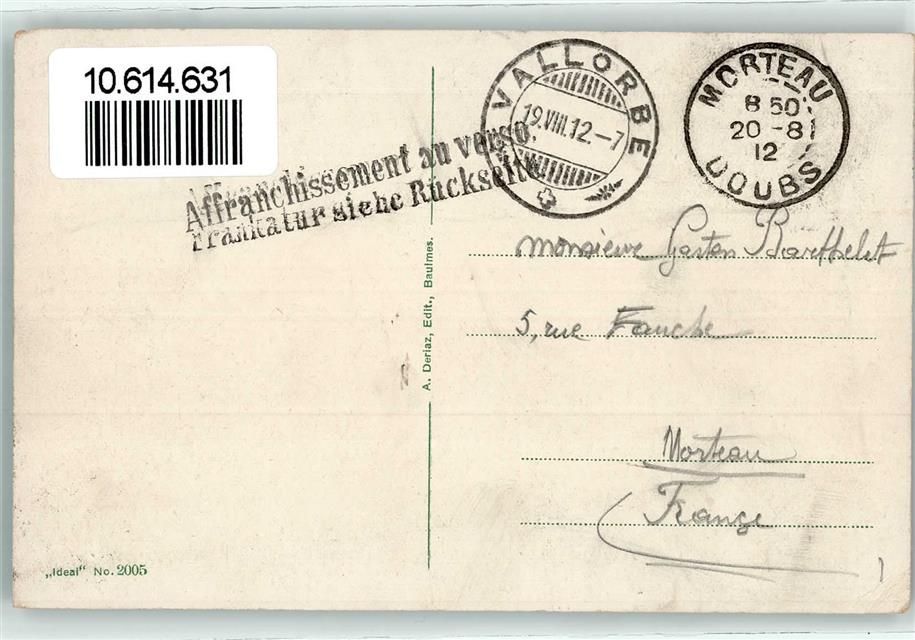 10.614.631
VALLORBE
19.VIII.12.–7
MORTEAU
8 50
20 -8
12
DOUBS
Affranchissement au verso.
Frankatur siehe Rückseite
monsieur Gaston Barthelet
5, rue Fauche
Morteau
France
A. Deriaz, Edit., Baulmes.
„Ideal“ No. 2005